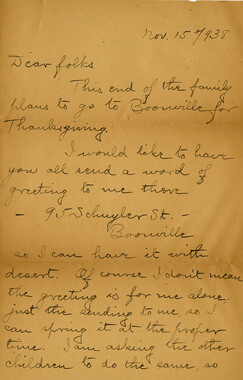 Nov. 15 1938
Dear folks
This end of the family
plans to go to Boonville for
Thanksgiving.
I would like to have
you all send a word of
greeting to me there
- 95 Schuyler St. -
Boonville
so I can have it with
desert. Of course I don't mean
the greeting is for me alone,
just the sending to me so I
can spring it at the proper
time. I am asking the other
children to do the same, so